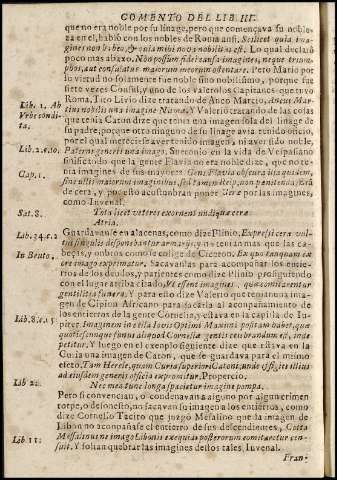 COMENTO DEL LIB III.
que no era noble por su linage, pero que començava su noble-
za en el, habló con los nobles de Roma ansi. Scilicet quia ima-
gines non habeo, & quia mihi nova nobilitas est. Lo qual declaró
poco mas abaxo. Non possum fidei causa imagines, neque trium-
phos, aut consulatus maiorum meorum ostentare. Pero Mario por
su virtud no solamente fue noble sino nobilissimo, porque fue
siete vezes Consul, y uno de los valerosos Capitanes que tuvo
Lib. 1. Ab
Roma, Tito Livio dize tratando de Anco Marcio, Ancus Mar-
Urbe condi-
tius nobilis una imagine Numæ, Y Valerio tratando de las cosas
ta.
que tenia Caton dize que tenia una imagen sola del linage de
su padre, porque otro ninguno de su linage avia tenido oficio,
por el qual mereciesse aver tenido imagen, ni aver sido noble,
Lib. 2. c. 10.
Paterni generis una imago. Suetonio en la vida de Vespasiano
Cap. 1.
nia imagines de sus mayores Gens Flavia obscura illa quidem,
sine ullis maiorum imaginibus, sed tamen reip. non pœnitenda, Era
de cera, y a por esto acustunbran poner Cera por las imagines,
como Iuvenal.
Sat. 8.
Tota licet veteres exornent undique ceræ
Atria.
Lib. 34. c. 2
Guardavanse en alacenas, como dize Plinio, Expressi cera vul-
tus singulis disponebantur armarijs, y no tenian mas que las ca-
In Bruto,
beças, y onbros como se colige de Ciceron. Ex quo tanquam ex
cera imago exprimatur. Sacavanlas para acompañar los entier-
ros de los deudos, y parientes como dize Plinio prosiguiendo
con el lugar arriba citado, Ut essent imagines, quæ comitarentur
gentilitia funera, Y para esto dize Valerio que tenian una ima-
gen de Cipion Africano para sacarla al acompañamiento de
Lib. 8. c. 15
los entierros de la gente Cornelia, y estava en la capilla de Iu-
piter Imaginem in cella Iovis Optimi Maximi positam habet, quæ
quotiescunque funus aliquod Corneliæ gentis celebrandum est, inde
petitur, Y luego en el exenplo siguiente dize que estava en la
Curia una imagen de Caton, que se guardava para el mismo
efeto,
ad eiusdem generis officia expromitur, Propercio.
Lib 2.
Nec mea tunc longa spacietur imagine pompa.
Pero si convencian, o condenavan a alguno por algun crimen
torpe, o desonesto, no sacavan su imagen a los entierros, como
dize Cornelio Tacito que juzgo Mesalino que la imagen de
Libon no aconpañase el entierro de sus decendientes, Cotta
Messalinus ne imago Libonis exequias posterorum comitaretur cen-
Lib 11.
suit. Y solian quebrar las imagines destos tales, Iuvenal.
Fran-